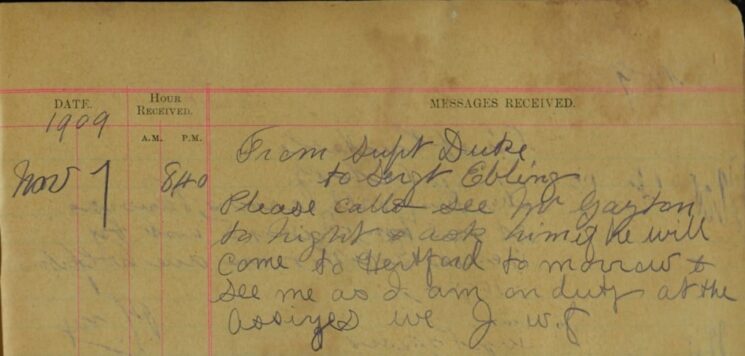 DATE.
HOUR
RECEIVED.
MESSAGES RECEIVED.
1909
A.M. P.M.
Nov 7
840
From Supt Duke
to Sergt Ebling
Please call & see Mr Gayton
to night & ask him if he will
come to Hertford to morrow to
see me as I am on duty at the
Assizes